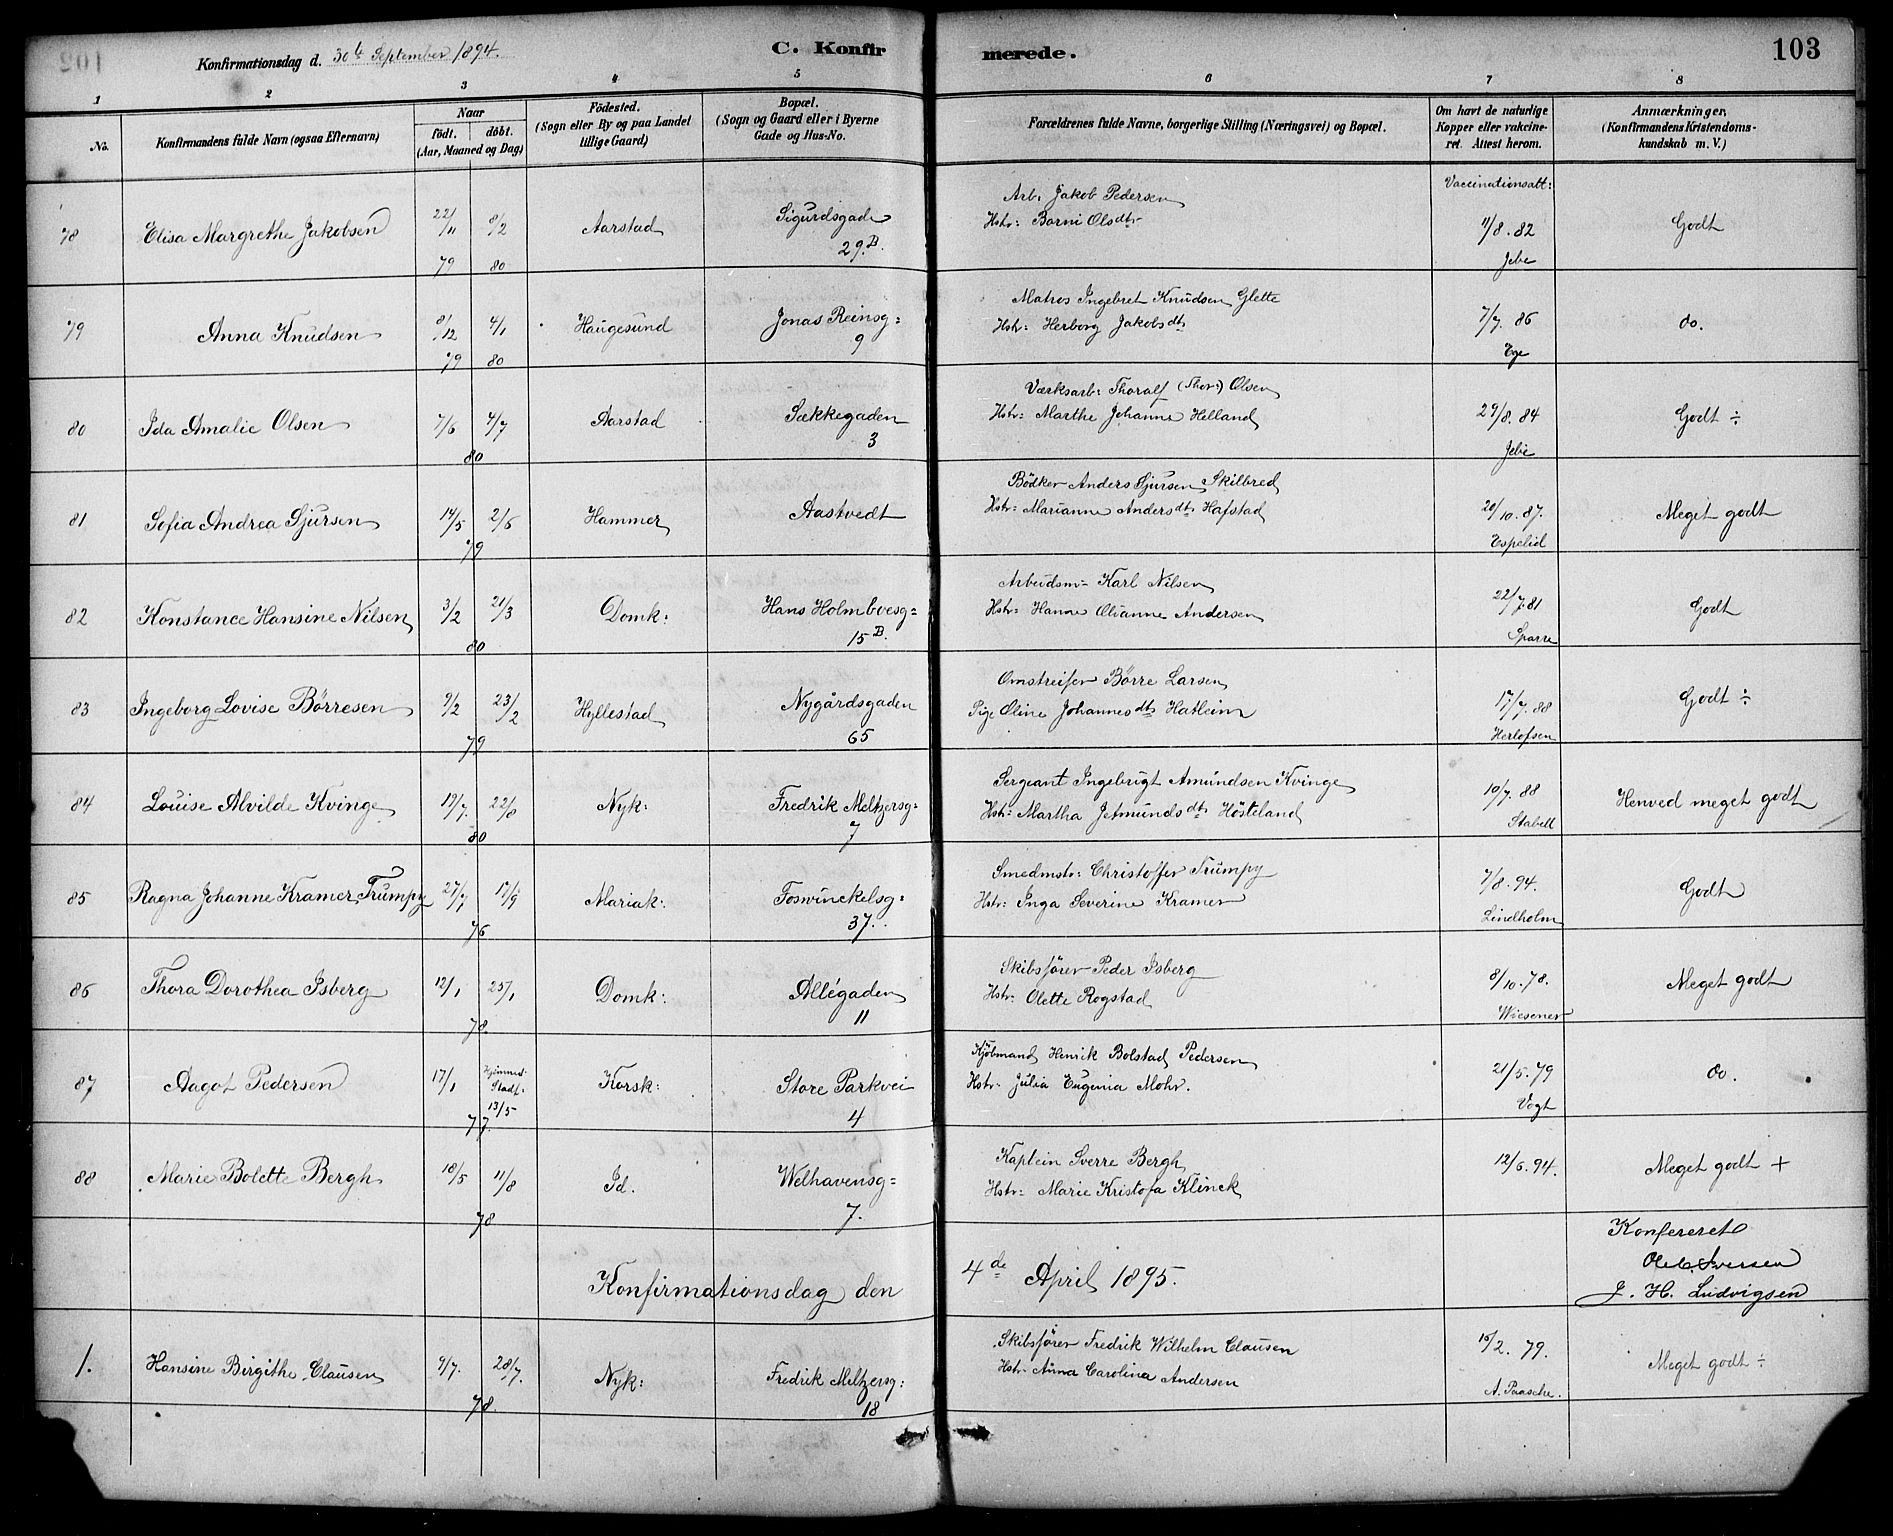 Konfirmationsdag d. 30te September 1894.
C. Konfirmerede.
103
1 2 3 4 5 6 7 8
No.
Konfirmandens fulde Navn (ogsaa Efternavn)
Naar
födt. döbt.
(Aar, Maaned og Dag)
Födested.
(Sogn eller By og paa Landet
tillige Gaard)
Bopæl.
(Sogn og Gaard eller i Byerne
Gade og Hus-No.
Forældrenes fulde Navne, borgerlige Stilling (Næringsvei) og Bopæl.
Om havt de naturlige
Kopper eller vakcine-
ret. Attest herom.
Anmærkninger,
(Konfirmandens Kristendoms-
kundskab m. V.)
Vaccinationsatt:
78 Elisa Margrethe Jakobsen 22/11 79 8/2 80 Aarstad Sigurdsgade 29.B.
Arb: Jakob Pedersen
Hstr: Barni Olsdtr 11/8. 82 Jebe Godt
79 Anna Knudsen 8/12 79 4/1 80 Haugesund Jonas Reinsg: 9
Matros Ingebret Knudsen Glette
Hstr: Herborg Jakobsdt 7/7. 86 Ege do.
80 Ida Amalie Olsen 7/6 4/7 80 Aarstad Sækkegaden 3
Værksarb: Thoralf (Thor:) Olsen
Hstr: Marthe Johanne Helland 29/8. 84 Jebe Godt ÷
81 Sofia Andrea Sjursen 14/5 2/6 79 Hammer Aastvedt
Bödker Anders Sjursen Skilbred
Hstr: Marianne Andersdt Hafstad 20/10. 87. Espelid Meget godt
82 Konstance Hansine Nilsen 3/2 21/3 80 Domk: Hans Holmboesg: 15 B.
Arbeidsm: Karl Nilsen
Hstr: Hanne Olianne Andersen 22/7 81 Sparre Godt
83 Ingeborg Lovise Börresen 9/2 23/2 79 Hyllestad Nygårdsgaden 65
Omstreifer Börre Larsen
Pige Oline Johannesdt Hatleim 17/7. 88 Herlofsen Godt ÷
84 Louise Alvilde Kvinge 19/7. 22/8 80 Nyk: Fredrik Meltzersg: 7
Sergeant Ingebrigt Amundsen Kvinge
Hstr: Martha Jetmundsdt Hösteland 10/7. 88 Stabell Henved meget godt
85 Ragna Johanne Kramer Trumpy 27/7 17/9 76 Mariak: Foswinckelsg: 37.
Smedmstr: Christoffer Trumpy
Hstr: Inga Severine Kramer 7/8. 94. Lindholm Godt
86 Thora Dorothea Isberg 12/1 25/1 78. Domk: Allégaden 11
Skibsförer Peder Isberg
Hstr: Olette Rogstad 8/10. 78. Wiesener Meget godt
87 Aagot Pedersen 17/1 Hjemmed. Stadf. 13/5 77. Korsk: Store Parkvei 4
Kjöbmand Henrik Bolstad Pedersen
Hstr: Julia Eugenia Mohr. 21/5. 79 Vogt do.
88 Marie Bolette Bergh 18/5 11/8 78 Id. Welhavensg: 7.
Kaptein Sverre Bergh
Hstr: Marie Kristofa Klinck 12/6. 94. Meget godt +
Konfereret
Ole C. Iversen
J. H. Ludvigsen
Konfirmationsdag den 4de April 1895.
1. Hansine Birgithe Clausen 9/7. 28/7. 78. Nyk: Fredrik Meltzersg: 18
Skibsförer Fredrik Wilhelm Clausen
Hstr: Anna Carolina Andersen 10/2. 79. A. Paasche. Meget godt ÷